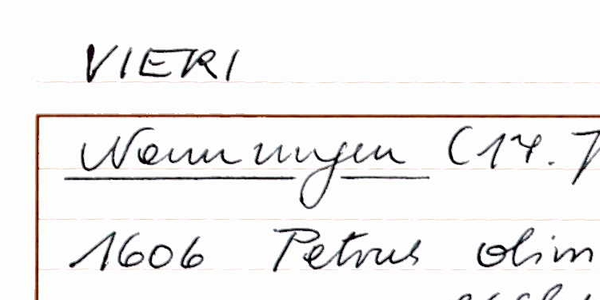 VIERI
Nennungen (17. J
1606 Petrus olim